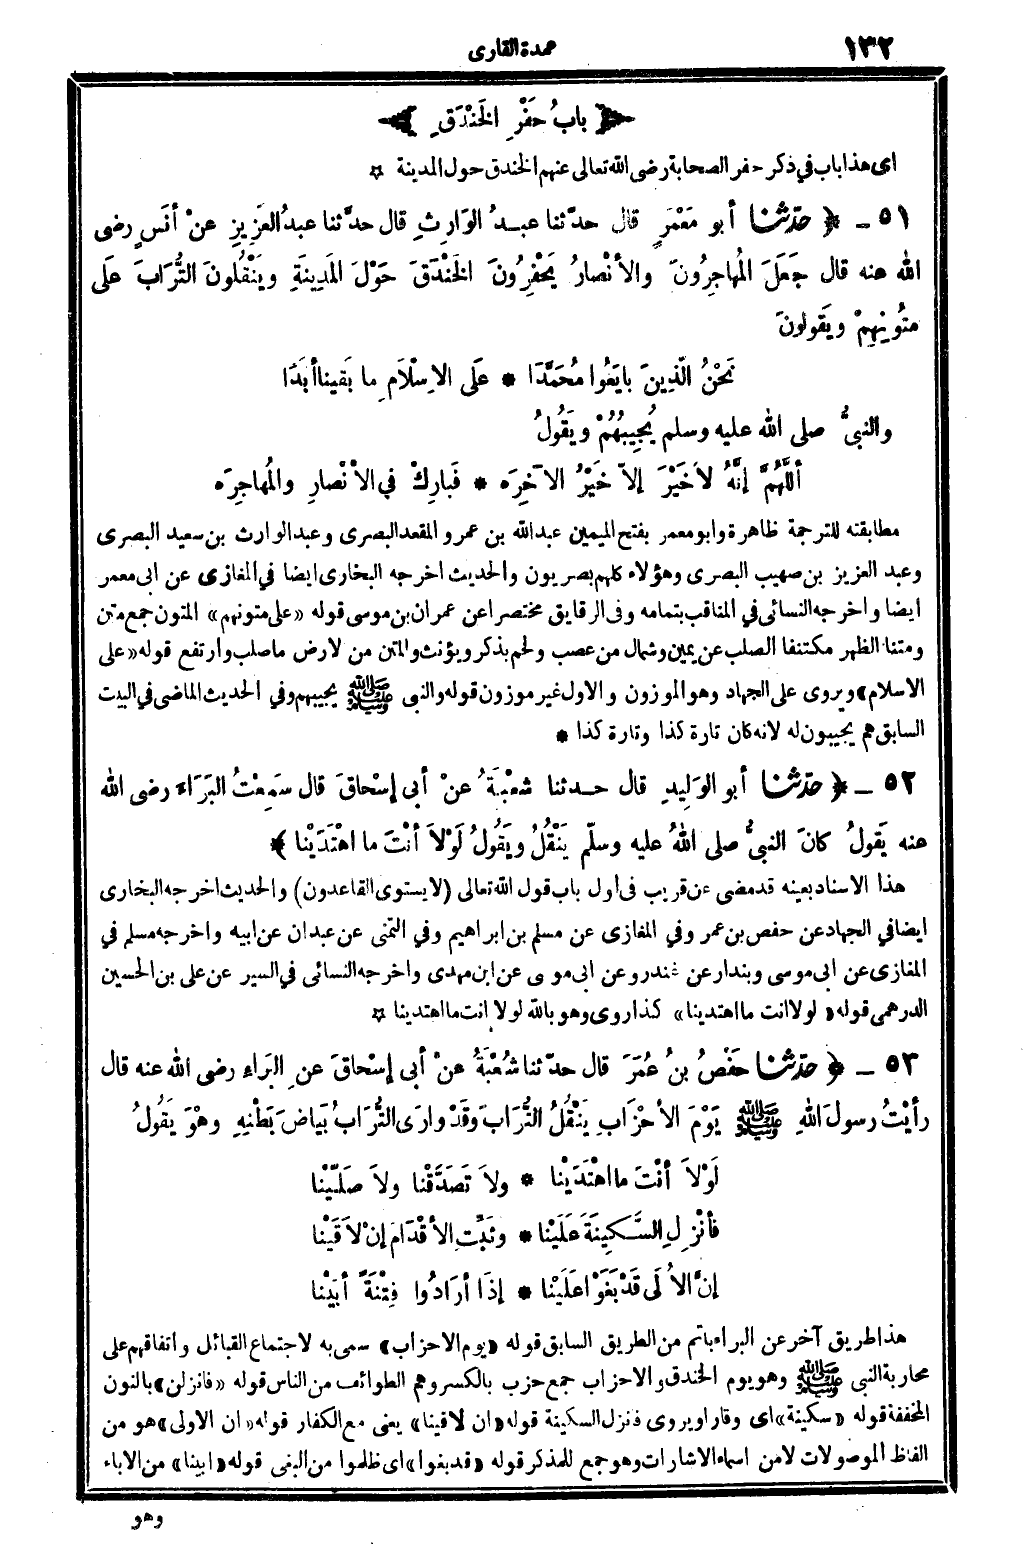 ١٣٢
عمدة القارى
بابُ حَفْرِ الخَنْدَقِ
اى هذا باب في ذكر حفر الصحابة رضى الله تعالى عنهم الخندق حول المدينة ☆
٥١ ـ ﴿ حدّثنا أبو مَعْمَرٍ قال حدّثنا عبدُ الوَارِثِ قال حدّثنا عبدُ العَزِيزِ عنْ أنَسٍ رضى
الله عنه قال جَعَلَ المُهاجِرُونَ والأنْصارُ يَحْفِرُونَ الخَنْدَقَ حَوْلَ المَدِينَةِ ويَنْقُلُونَ التُّرَابَ علَى
متُونِهِمْ ويَقولونَ
نَحْنُ الَّذِينَ بايَعُوا مُحَمَّدَا * علَى الاِسْلاَمِ ما بَقِينا أبَدَا
والنبيُّ صلى الله عليه وسلم يُجِيبُهُمْ ويَقُولُ
أللَّهُمَّ إنَّهُ لاَ خَيْرَ إلاّ خَيْرُ الآخِرَه * فَبارِكْ في الأنْصارِ والمُهاجِرَه
مطابقته للترجمة ظاهرة وابو معمر بفتح الميمين عبدالله بن عمرو المقعد البصرى وعبد الوارث بن سعيد البصرى
وعبد العزيز بن صهيب البصرى وهؤلاء كلهم بصريون والحديث اخرجه البخارى ايضا في المغازى عن ابى معمر
ايضا واخرجه النسائى في المناقب بتمامه وفى الرقايق مختصرا عن عمران بن موسى قوله «على متونهم» المتون جمع متن
ومتنا الظهر مكتنفا الصلب عن يمين وشمال من عصب ولحم يذكر ويؤنث والمتن من لارض ماصلب وارتفع قوله «على
الاسلام» ويروى على الجهاد وهو الموزون والاول غير موزون قوله والنبى ﷺ يجيبهم وفي الحديث الماضى في البيت
السابق هم يجيبون له لانه كان تارة كذا وتارة كذا *
٥٢ ـ ﴿ حدّثنا أبو الوَلِيدِ قال حدثنا شعْبَةُ عنْ أبى إسْحاقَ قال سَمِعْتُ البَرَاءَ رضى الله
عنه يَقولُ كانَ النبيُّ صلى اللهُ عليه وسلّم يَنْقُلُ ويَقُولُ لَوْلاَ أنْتَ ما اهْتَدَيْنا ﴾
هذا الاسناد بعينه قد مضى عن قريب فى اول باب قول الله تعالى (لا يستوى القاعدون) والحديث اخرجه البخارى
ايضا في الجهاد عن حفص بن عمر وفي المغازى عن مسلم بن ابراهيم وفي التمنى عن عبدان عن ابيه واخرجه مسلم في
المغازى عن ابى موسى وبندار عن غندر وعن ابى موسى عن ابن مهدى واخرجه النسائى في السير عن على بن الحسين
الدرهمى قوله «لولا انت ما اهتدينا» كذا روى وهو بالله لولا انت ما اهتدينا ☆
٥٣ ـ ﴿ حدّثنا حَفْصُ بنُ عُمَرَ قال حدّثنا شُعْبَةُ عنْ أبى إسْحاقَ عنِ البَرَاءِ رضى الله عنه قال
رأيْتُ رسولَ اللهِ ﷺ يَوْمَ الأحْزَابِ يَنْقُلُ التُّرَابَ وقَدْ وارَى التُّرَابُ بَياضَ بَطْنِهِ وهْوَ يَقُولُ
لَوْلاَ أنْتَ ما اهْتَدَيْنا * ولاَ تَصَدَّقْنا ولاَ صَلَّيْنا
فأنْزِلِ السَّكِينَةَ عَلَيْنا * وثَبِّتِ الأقْدَامَ إنْ لاَقَيْنا
إنَّ الأُلَى قَدْ بَغَوْا علَيْنا * إذَا أرَادُوا فِتْنَةً أبَيْنا
هذا طريق آخر عن البراء باتم من الطريق السابق قوله «يوم الاحزاب» سمى به لاجتماع القبائل واتفاقهم على
محاربة النبى ﷺ وهو يوم الخندق والاحزاب جمع حزب بالكسر وهم الطوائف من الناس قوله «فانزلن» بالنون
المخففة قوله «سكينة» اى وقارا ويروى فنزل السكينة قوله «ان لاقينا» يعنى مع الكفار قوله «ان الاولى» هو من
الفاظ الموصولات لامن اسماء الاشارات وهو جمع للمذكر قوله «قد بغوا» اى ظلموا من البغى قوله «ابينا» من الاباء
وهو